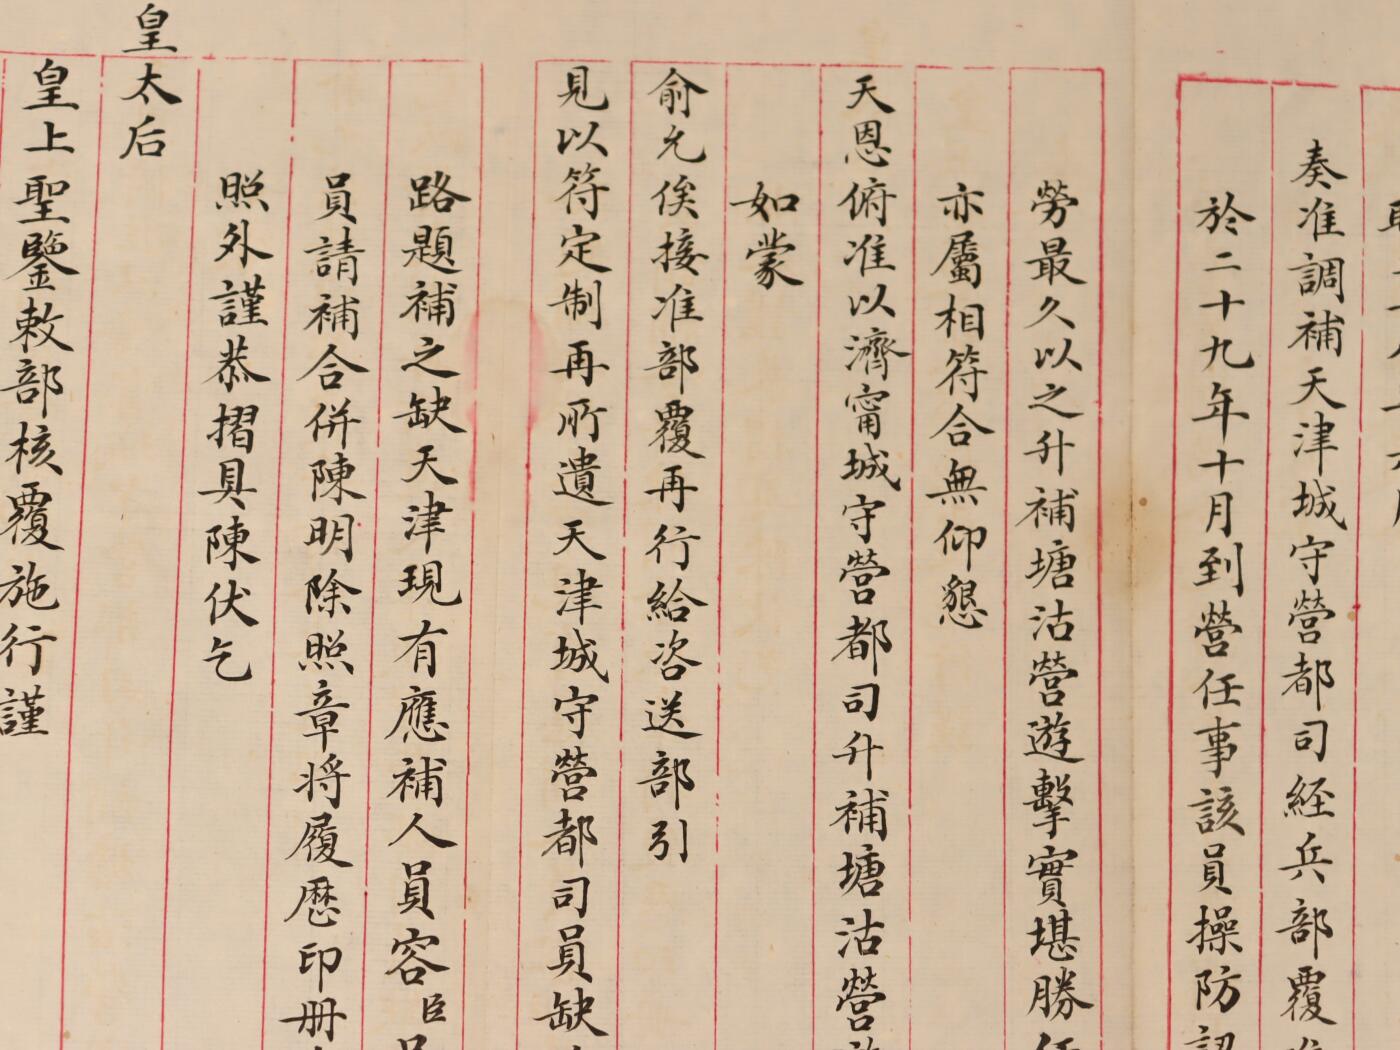 奏准調補天津城守營都司經兵部覆准
於二十九年十月到營任事該員操防認
勞最久以之升補塘沽營遊擊實堪勝任
亦屬相符合無仰懇
天恩俯准以濟甯城守營都司升補塘沽營遊
如蒙
俞允俟接准部覆再行給咨送部引
見以符定制再所遺天津城守營都司員缺
路題補之缺天津現有應補人員容臣
員請補合併陳明除照章將履歷印册
照外謹恭摺具陳伏乞
皇太后
皇上聖鑒敕部核覆施行謹